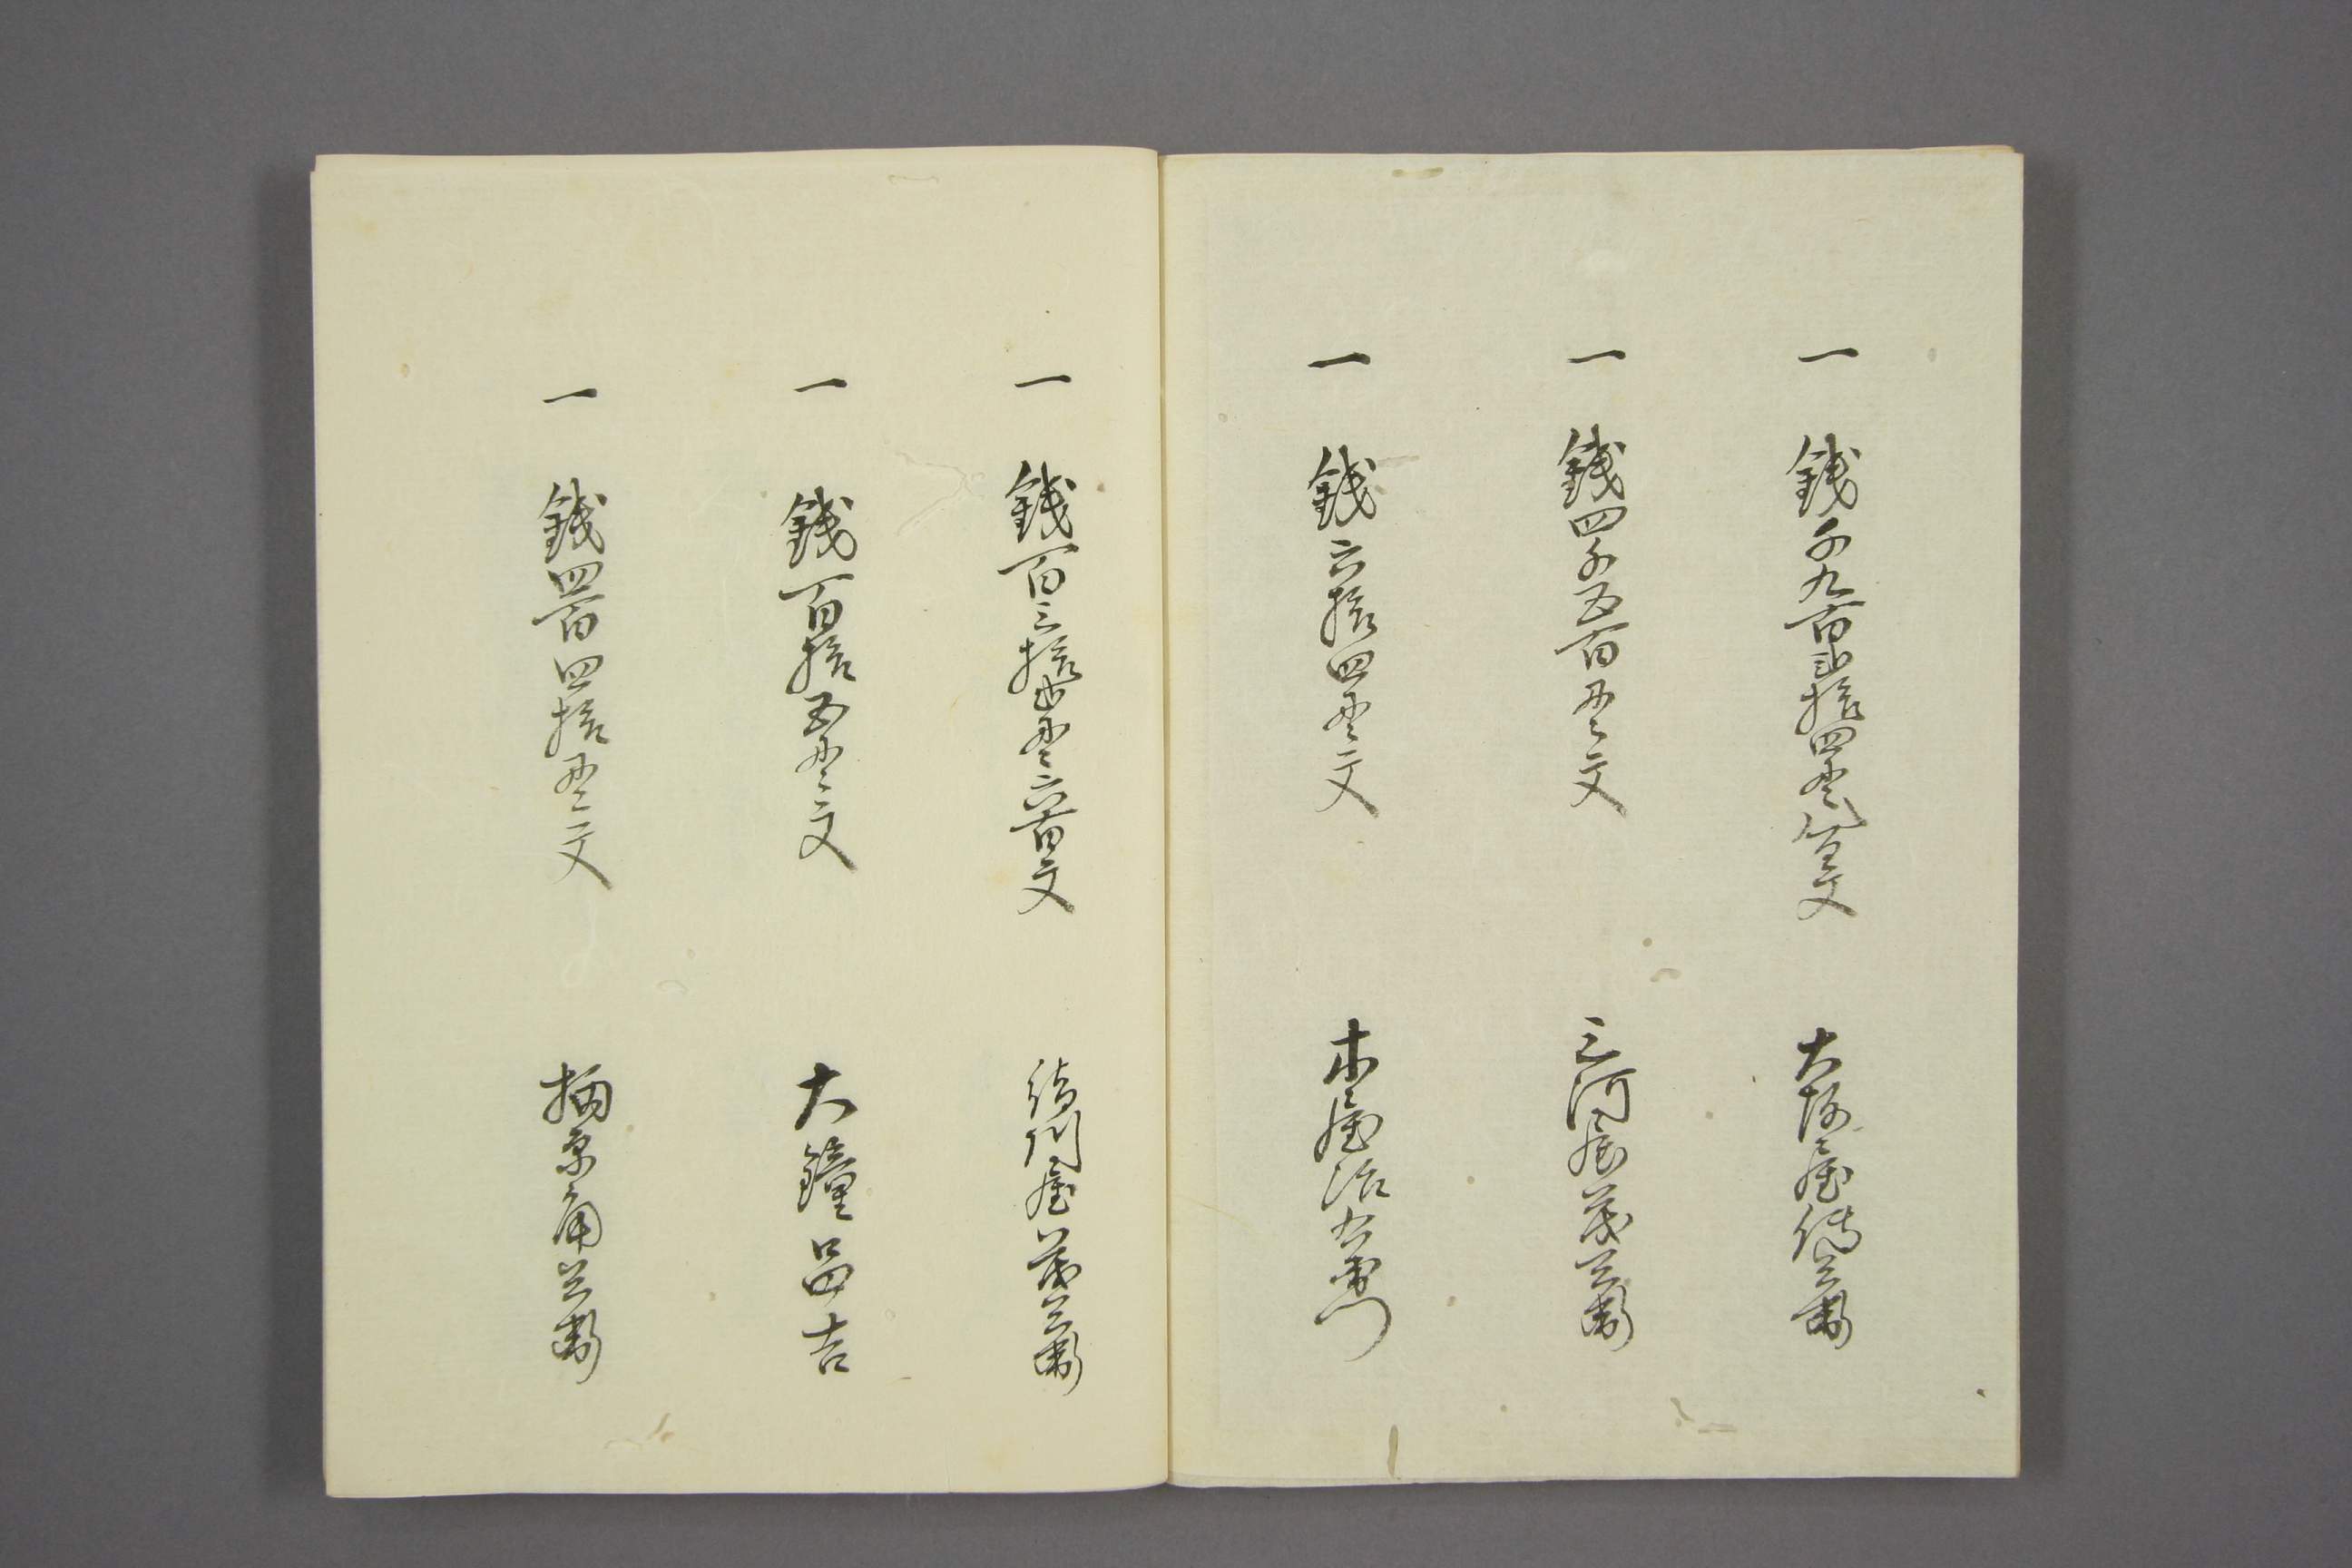 一 銭千九百弐拾四貫八百文 大坂屋徳兵衛
一 銭四千五百貫文 三河屋茂兵衛
一 銭六拾四貫文 木屋治右衛門
一 銭百三拾壱貫六百文 徳川屋茂兵衛
一 銭百拾五貫文 大鐘昌吉
一 銭四百四拾貫文 兵衛